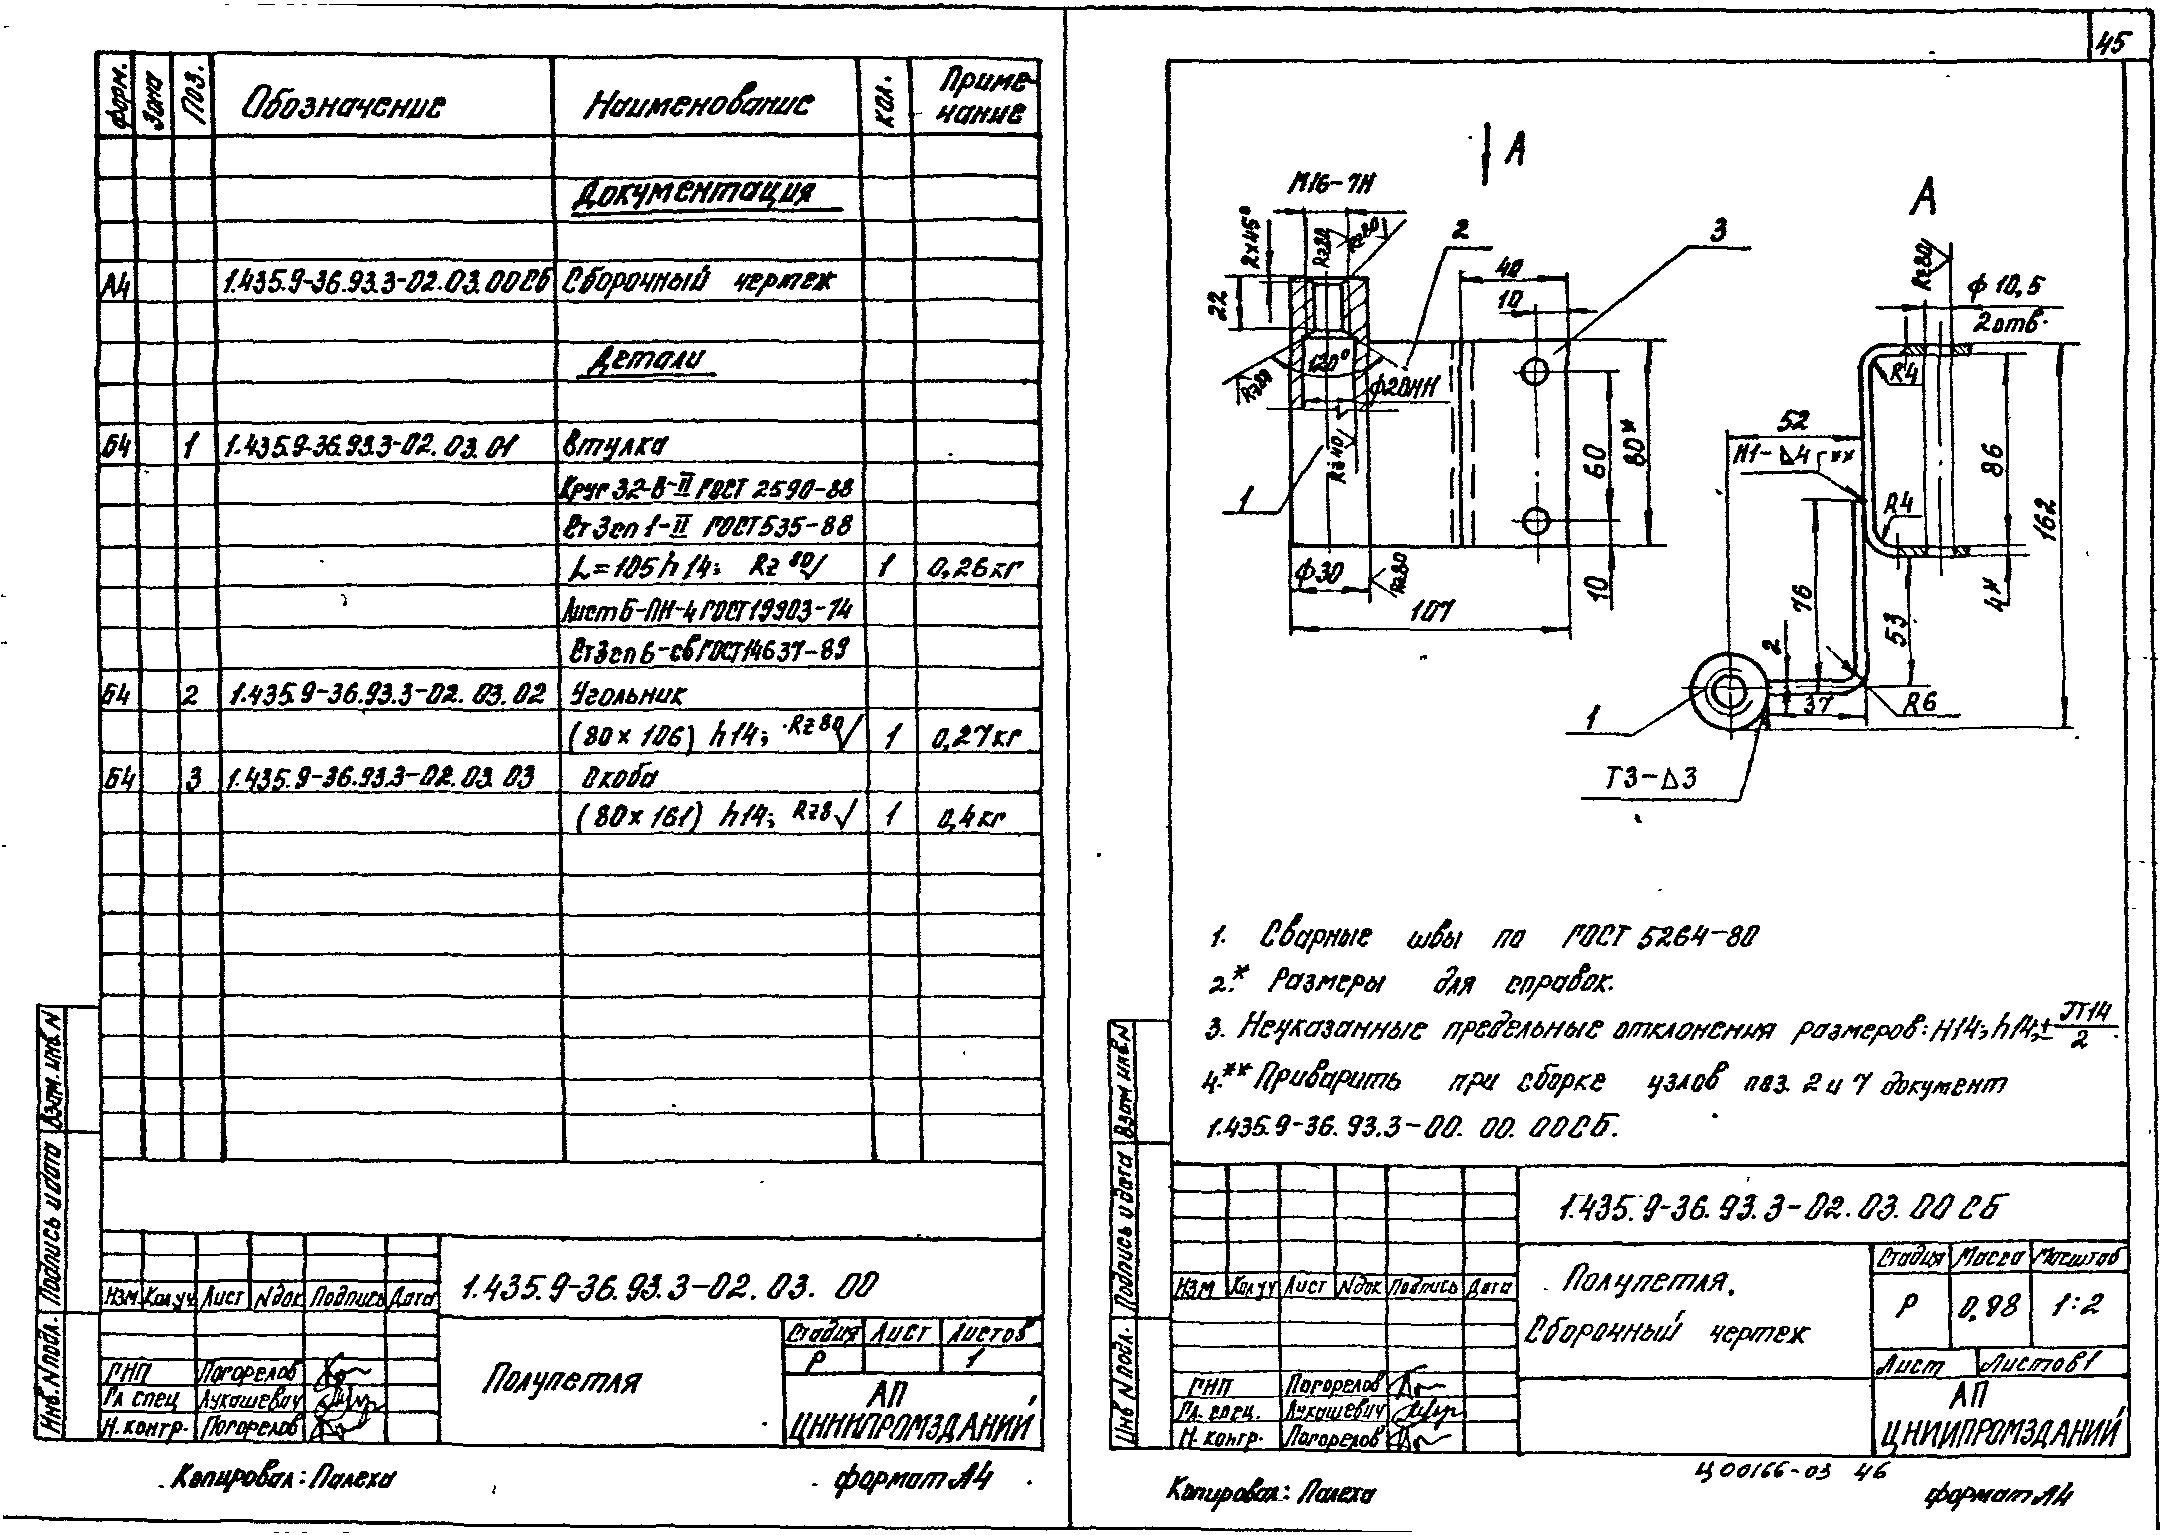 Форм.
Зона
Поз.
Обозначение
Наименование
Кол.
Приме-
чание
Документация
А4 1.435.9-36.93.3-02.03.00СБ Сборочный чертеж
Детали
Б4 1 1.435.9-36.93.3-02.03.01 Втулка
Круг 32-В-II ГОСТ 2590-88
Ст3сп1-II ГОСТ 535-88
L=105 h14; Rz 80 1 0,26 кг
Лист Б-ПН-4 ГОСТ 19903-74
Ст3сп6-св ГОСТ 14637-89
Б4 2 1.435.9-36.93.3-02.03.02 Угольник
(80×106) h14; Rz 80 1 0,27 кг
Б4 3 1.435.9-36.93.3-02.03.03 Скоба
(80×161) h14; Rz8 1 0,4 кг
Взам. инв. N
Подпись и дата
Инв. N подл.
Изм Кол.уч Лист Nдок Подпись Дата
1.435.9-36.93.3-02.03.00
ГИП Погорелов
Гл спец Лукашевич
Н. контр. Погорелов
Полупетля
Стадия Лист Листов
Р 1
АП
ЦНИИПРОМЗДАНИЙ
Копировал: Палеха
формат А4
45
А
М16-7Н
2×45°
Rz80
Rz80
2
3
40
10
22
120°
Rz80
ф20Н14
Rz40
60
80*
1
ф30
Rz80
107
10
А
Rz80
ф10,5
2 отв.
R4
52
Н1-△4 г**
86
162
R4
76
53
4*
2
37
R6
1
Т3-△3
1. Сварные швы по ГОСТ 5264-80
2.* Размеры для справок.
3. Неуказанные предельные отклонения размеров: Н14; h14; ± IT14/2
4.** Приварить при сборке узлов поз. 2 и 7 документ
1.435.9-36.93.3-00.00.00СБ.
Взам инв. N
Подпись и дата
Инв N подл.
1.435.9-36.93.3-02.03.00 СБ
Изм Кол.уч Лист Nдок Подпись Дата
Полупетля.
Сборочный чертеж
Стадия Масса Масштаб
Р 0,98 1:2
Лист Листов 1
ГИП Погорелов
Гл. спец. Лукашевич
Н. контр. Погорелов
АП
ЦНИИПРОМЗДАНИЙ
Ц00166-03 46
Копировал: Палеха
формат А4